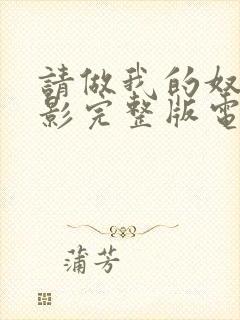 請做我的奴
影完整版電
蒲芳